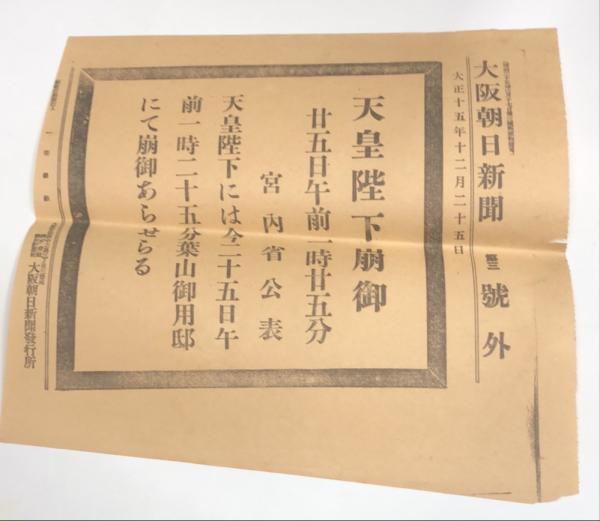 大阪朝日新聞 第三 號外
大正十五年十二月二十五日
天皇陛下崩御
廿五日午前一時廿五分
宮內省公表
天皇陛下には今二十五日午
前一時二十五分葉山御用邸
にて崩御あらせらる
大阪朝日新聞發行所